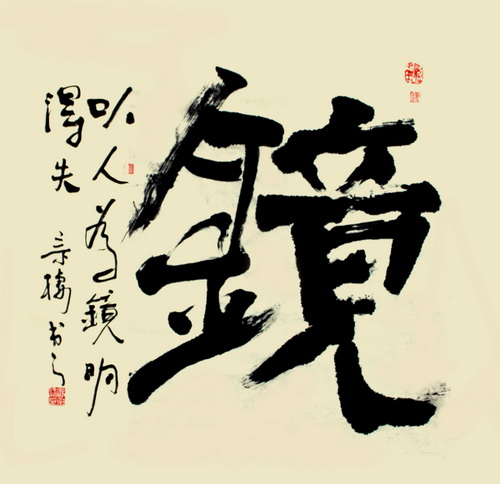 鏡
以人為鏡明
得失